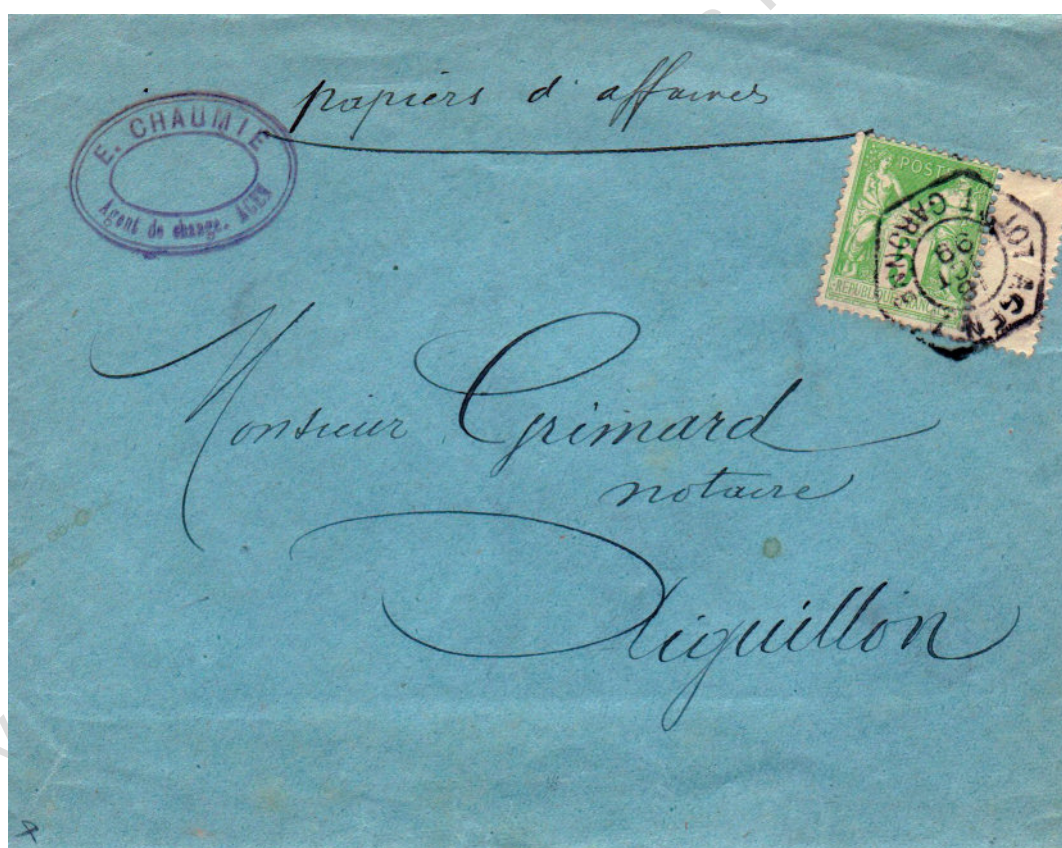 papiers d'affaires
E. CHAUMIE
Agent de change. AGEN
POSTE
REPUBLIQUE FRANCAISE
AGEN
LOT ET GARONNE
OCT
99
Monsieur Grimard
notaire
Aiguillon